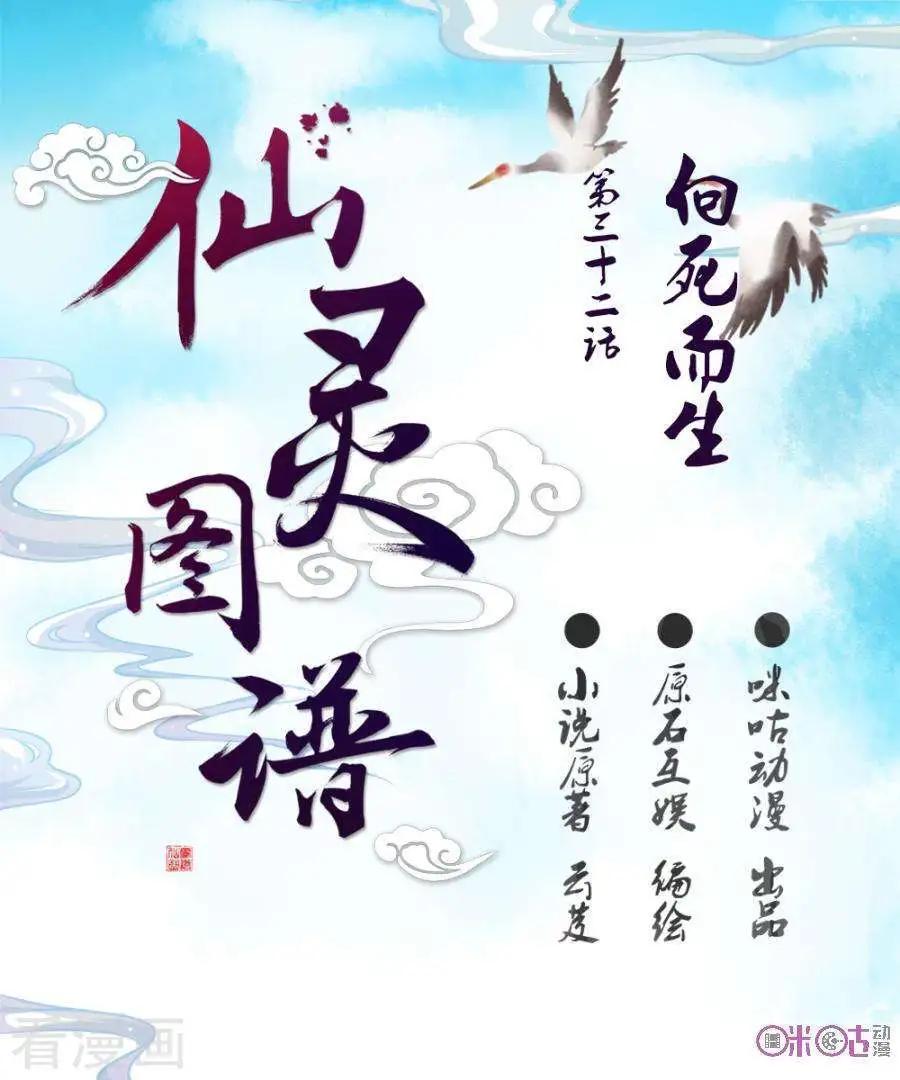 仙灵图谱
第三十二话
向死而生
咪咕动漫 出品
原石互娱 编绘
小说原著 云芨
看漫画
咪咕动漫